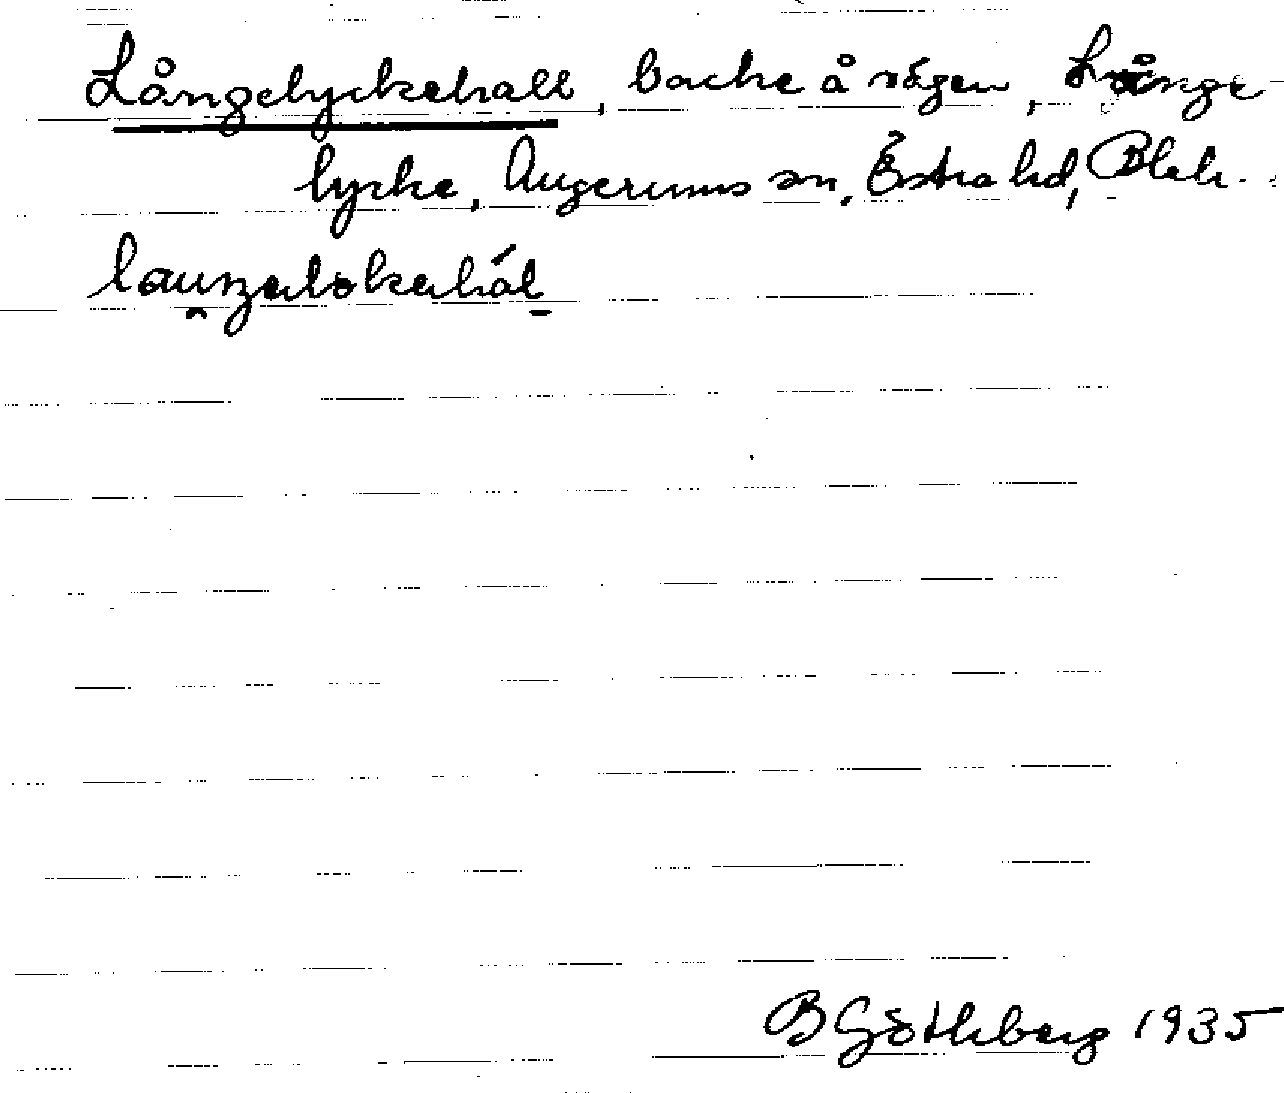 Långelyckehall, backe å vägen, Långe-
lycke, Augerums sn, Östra hd, Blek.
B Göthberg 1935